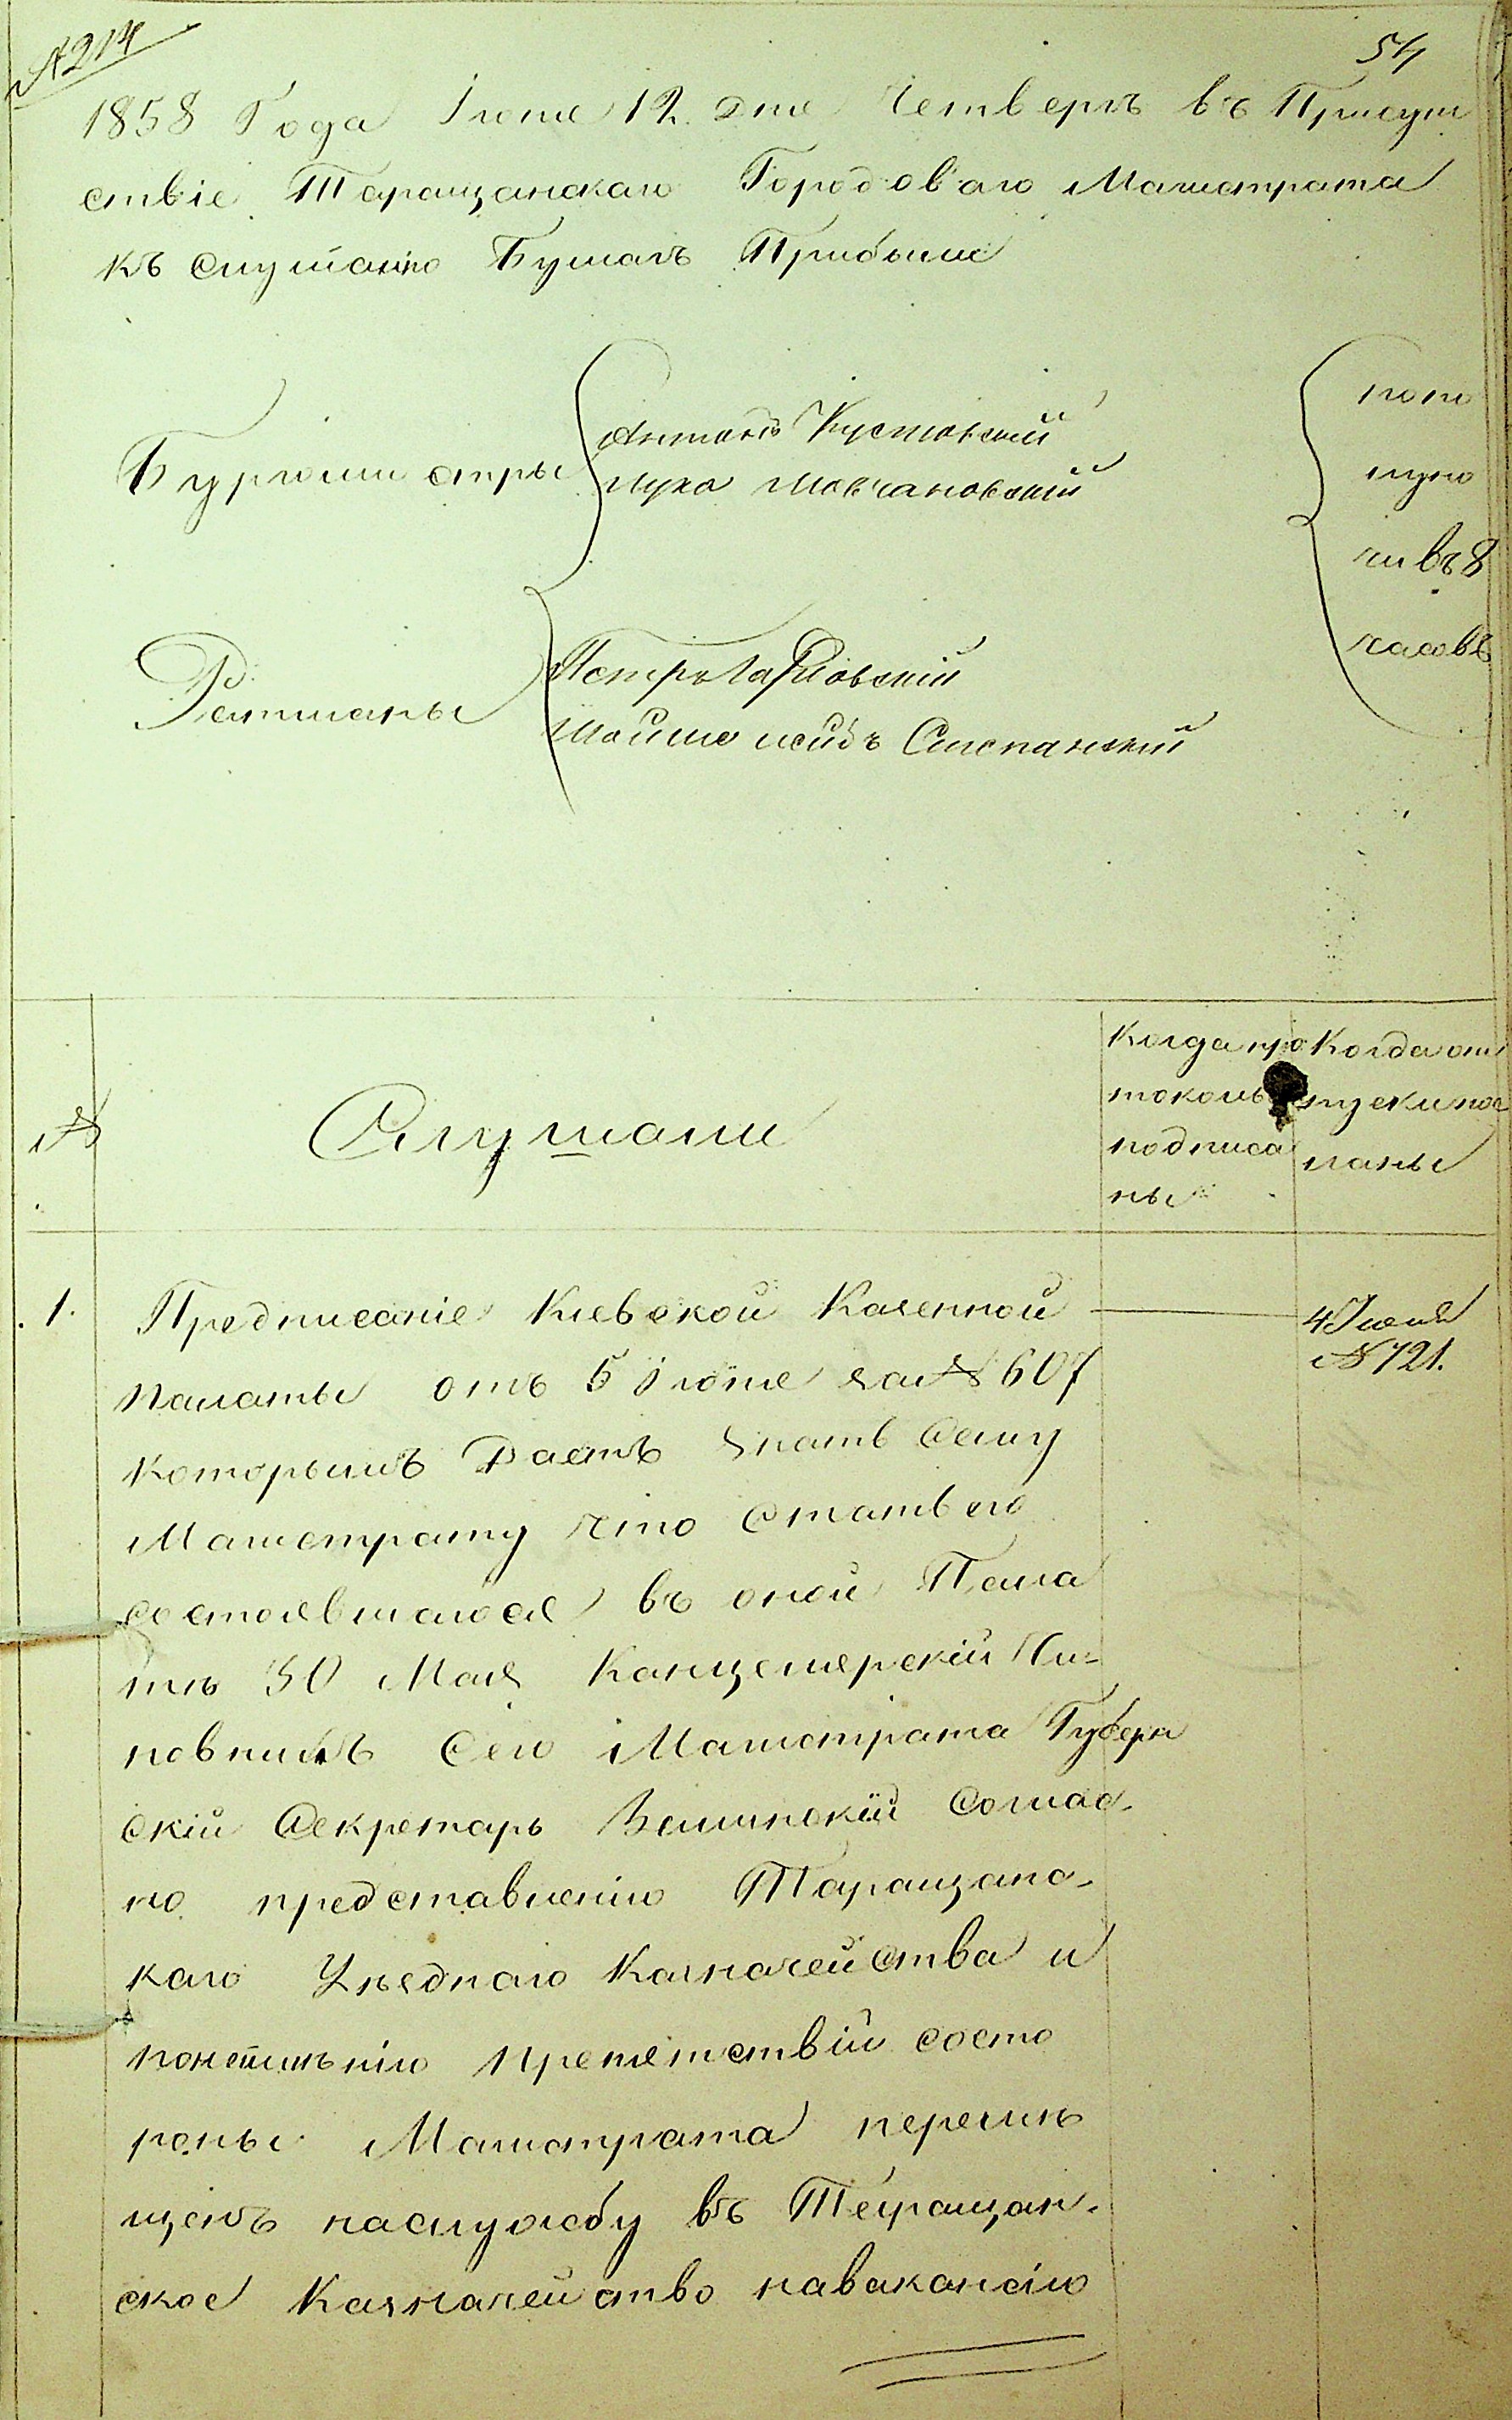 № 214
54
1858 Года Іюня 12. дня Четверга въ Присут
ствіе Таращанскаго Городоваго Магистрата
къ слушанію Бумагъ Прибыли
Бургомистры
Антонъ Кустовскій
Лука Молчановский
Ратманы
Петръ
Мойше Степанский
попо
луно
чи въ 8
часовъ
№
Слушали
Когда про
токолъ
подписа
ны
Когда от
пуски пос
ланы
1.
Предписаніе Кіевской Казенной
палаты отъ 5 Іюня за № 607
которымъ Даетъ знать Сему
Магистрату что Статьею
состоявшагося въ оной Пала
тѣ 30 Мая Канцелярскій Чи-
новникъ Сего Магистрата Губерн
скій Секретарь Зелинскій соглас-
но представленію Таращанс-
каго Уѣзднаго Казначейства и
понеимѣнію препятствій состо
роны Магистрата перемѣ
щенъ наслужбу въ Таращан-
ское Казначейство навакансію
4 Іюня
№ 721.